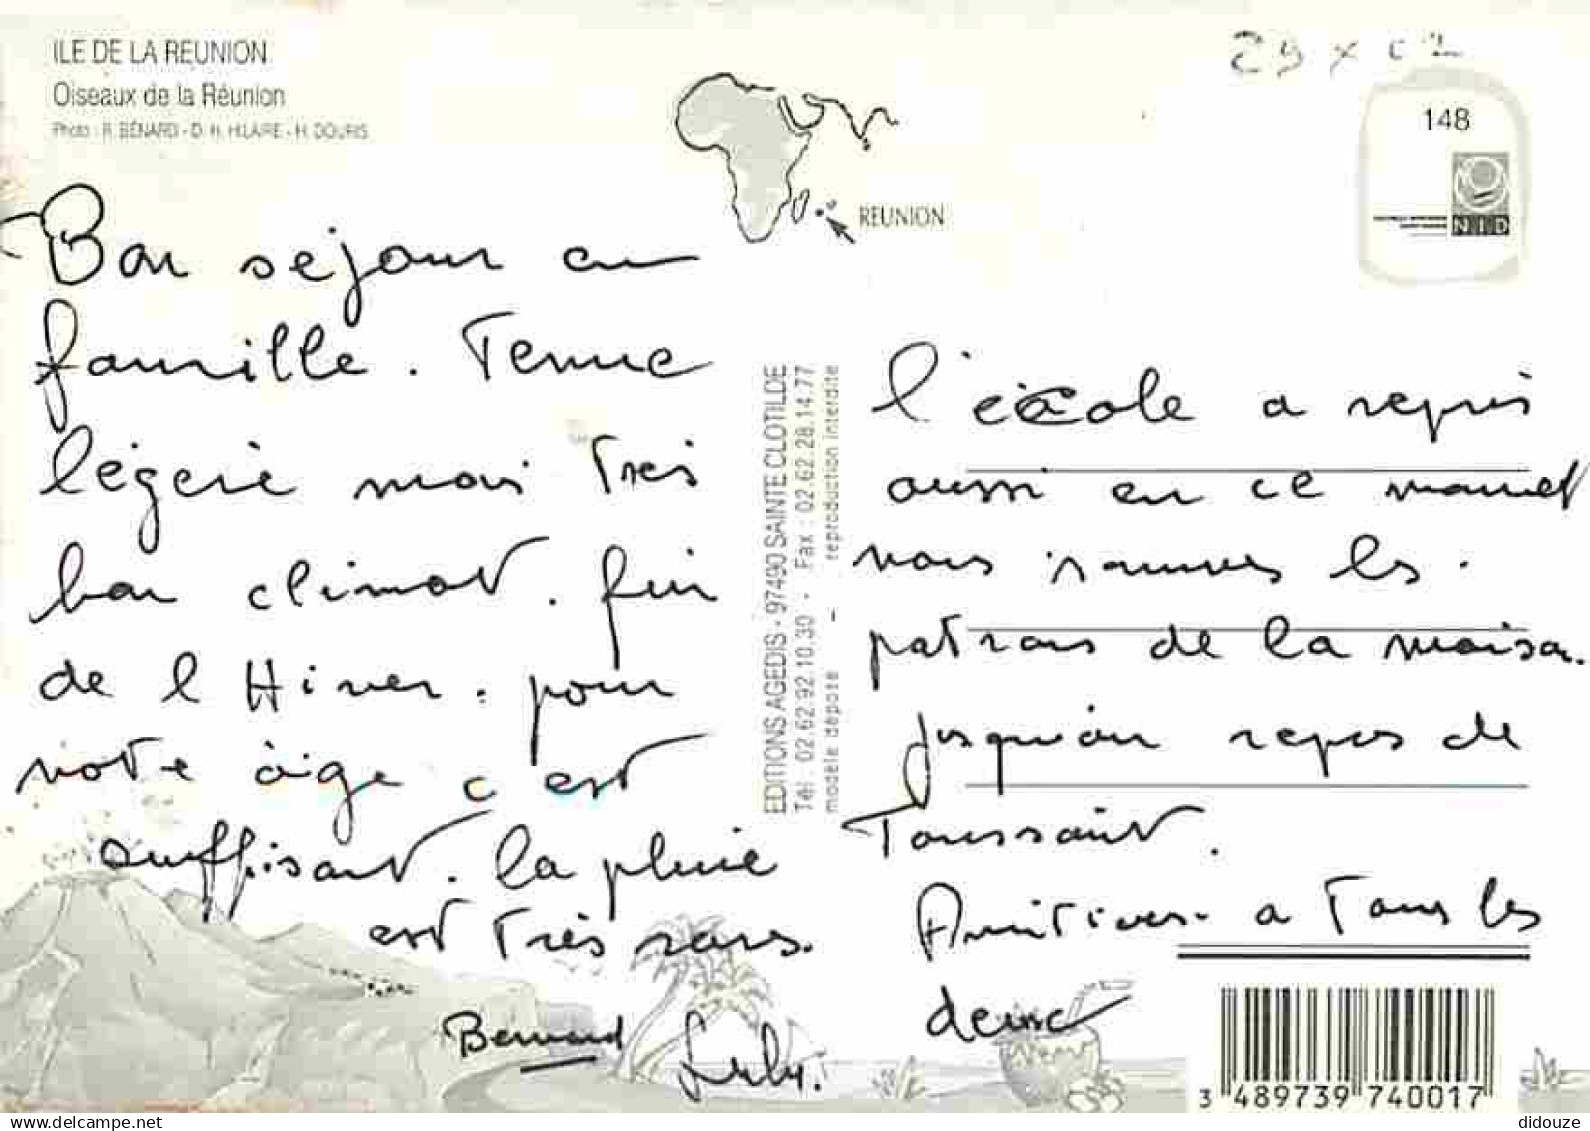 ILE DE LA REUNION
Oiseaux de la Réunion
Photo : R. BÉNARD - D. H. HILAIRE - H. DOURIS
29 x 02
148
NID
REUNION
Bon séjour en
famille. Tenue
légère mais très
bon climat. fin
de l Hiver. pour
notre âge c est
suffisant. la pluie
est très rare.
Bernard
EDITIONS AGEDIS - 97490 SAINTE CLOTILDE
Tél : 02.62.92.10.30 - Fax : 02.62.28.14.77
modèle déposé - reproduction interdite
l'école a repris
aussi en ce moment
nous sommes les
patrons de la maison.
jusqu'au repos de
Toussaint.
Amitiés a Tous les
deux
3 489739 740017
didouze